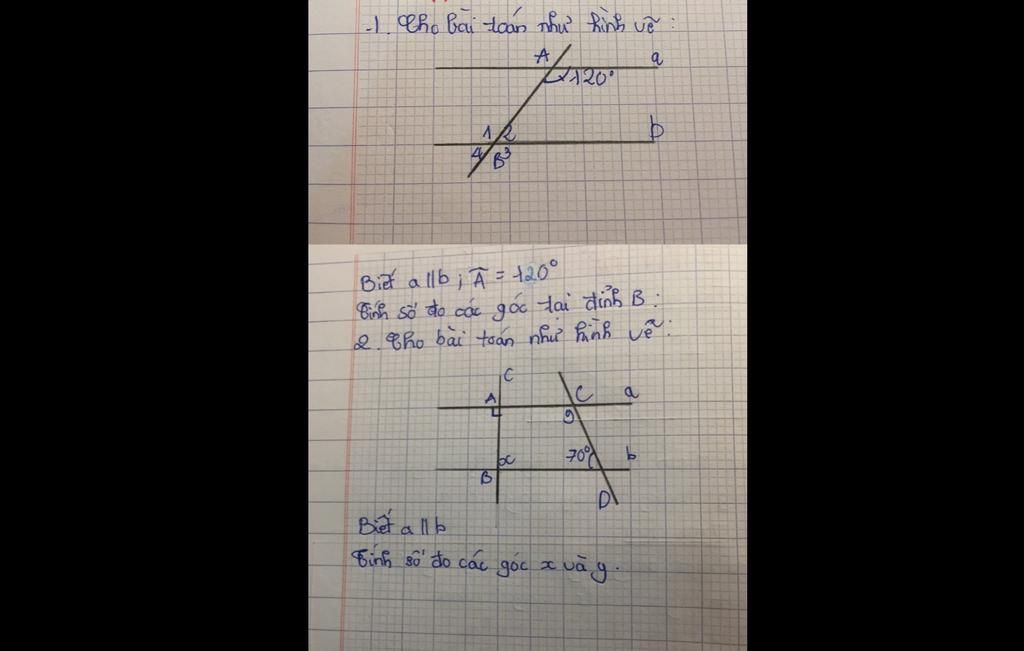 1. Cho bài toán như hình vẽ:
A a
120°
1 2 b
4 B 3
Biết a//b; Â = 120°
Tính số đo các góc tại đỉnh B:
2. Cho bài toán như hình vẽ:
C
A C a
y
x 70° b
B
D
Biết a//b
Tính số đo các góc x và y.